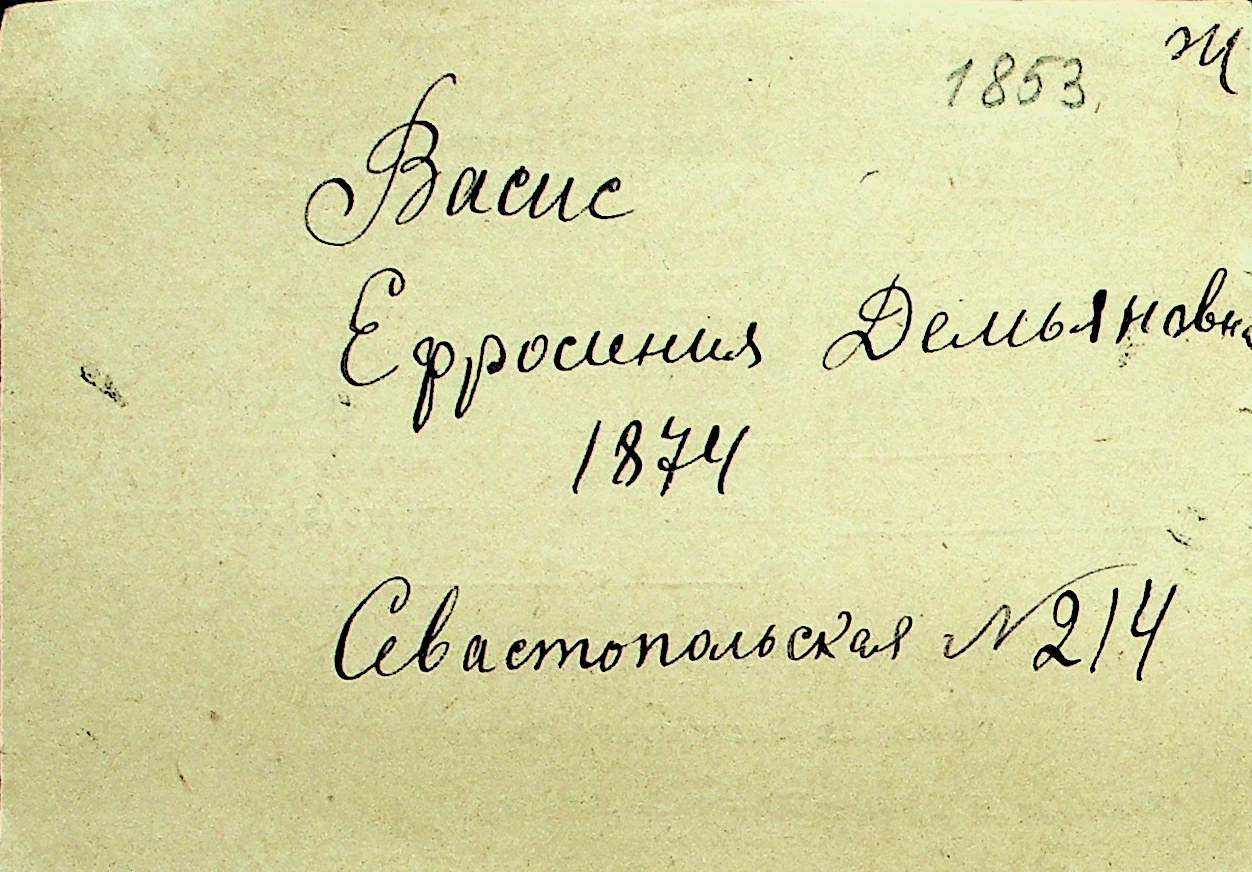 1853. Ж
Васис
Ефросиния Демьяновна
1874
Севастопольская №214